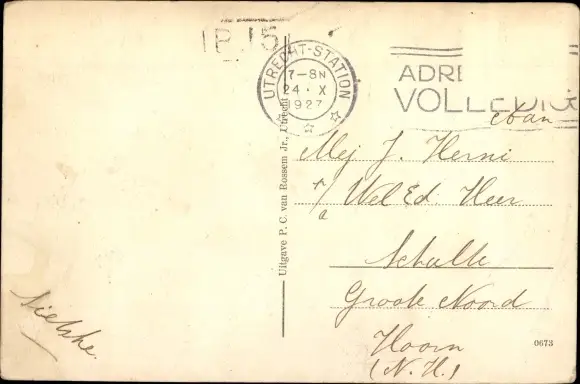 IPJ5
UTRECHT-STATION
7-8N
24 · X
1927
ADRE
VOLLEDIG
Uitgave P. C. van Rossem Jr., Utrecht
Mej J. Herni
p/a Wel Ed. Heer
Schalle
Groote Noord
Hoorn
(N.H.)
Sietske.
0673